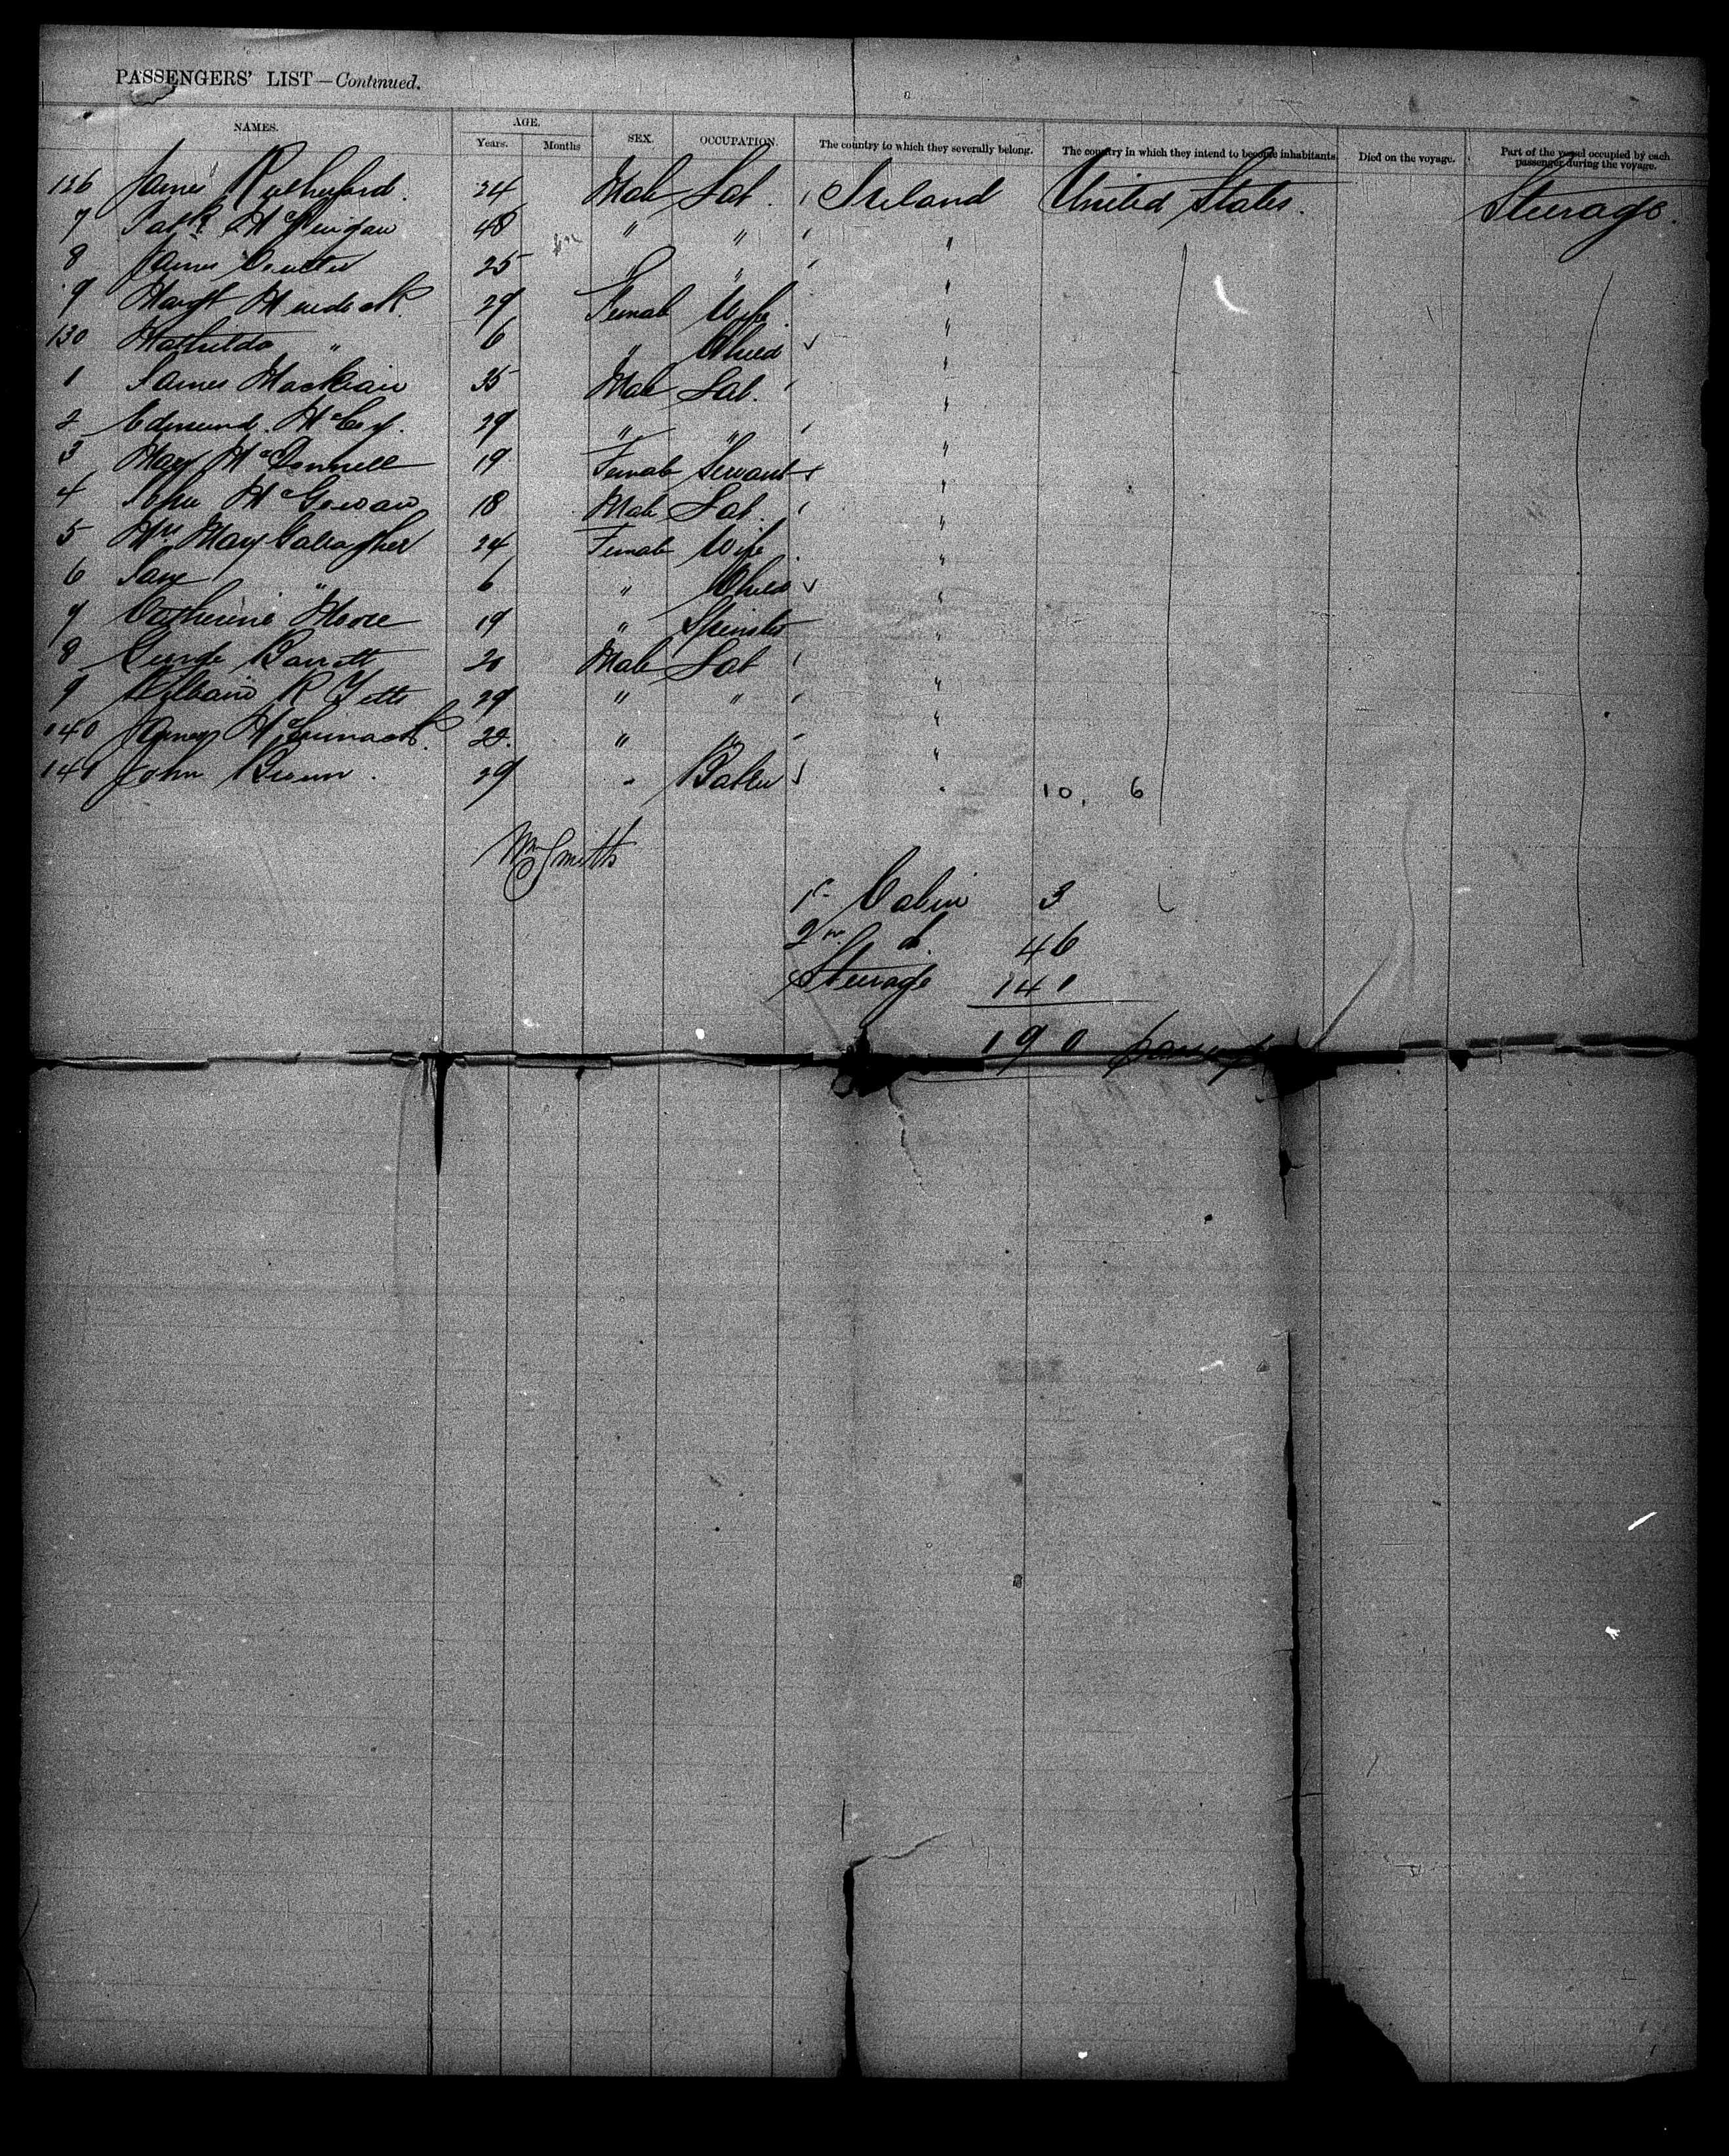 PASSENGERS' LIST—Continued.
NAMES. AGE. SEX. OCCUPATION. The country to which they severally belong. The country in which they intend to become inhabitants. Died on the voyage. Part of the vessel occupied by each passenger during the voyage.
Years. Months
126 James Rutherford. 24 Male Lab. Ireland United States. Steerage.
7 Patk 48 " " "
8 James Coulter 25 " " "
9 Margt 29 Female Wife "
130 Mathilda " 6 " Child "
1 James 35 Male Lab. "
2 Edmund McCoy. 29 " " "
3 Mary McDonnell 19 Female Servant "
4 John McGowan 18 Male Lab. "
5 Mrs Mary Gallagher 24 Female Wife "
6 Jane " 6 " Child "
7 Catherine Moore 19 " Spinster "
8 Barrett 20 Male Lab "
9 William R 29 " " "
140 James 22. " " "
141 John Brown. 29 " Baker " 10, 6
Wm Smith
1st Cabin 3
2nd d. 46
Steerage 141
190